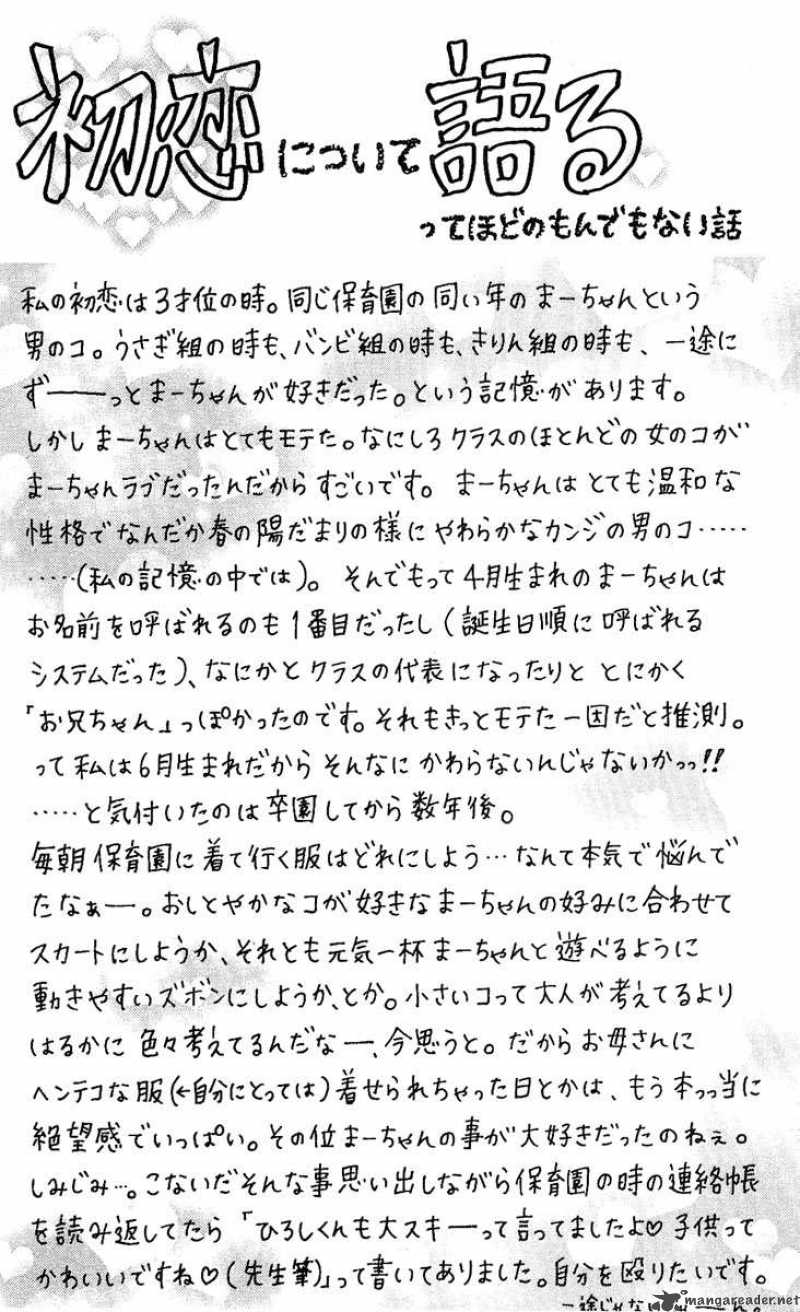 初恋について語る
ってほどのもんでもない話
私の初恋は3才位の時。同じ保育園の同い年のまーちゃんという
男のコ。うさぎ組の時も、バンビ組の時も、きりん組の時も、一途に
ず――っとまーちゃんが好きだった。という記憶があります。
しかしまーちゃんはとてもモテた。なにしろクラスのほとんどの女のコが
まーちゃんラブだったんだからすごいです。 まーちゃんはとても温和な
性格でなんだか春の陽だまりの様にやわらかなカンジの男のコ……
……(私の記憶の中では)。そんでもって4月生まれのまーちゃんは
お名前を呼ばれるのも1番目だったし(誕生日順に呼ばれる
システムだった)、なにかとクラスの代表になったりと とにかく
「お兄ちゃん」っぽかったのです。それもきっとモテた一因だと推測。
って私は6月生まれだからそんなにかわらないんじゃないかっっ!!
……と気付いたのは卒園してから数年後。
毎朝保育園に着て行く服はどれにしよう…なんて本気で悩んで
たなぁー。おしとやかなコが好きなまーちゃんの好みに合わせて
スカートにしようか、それとも元気一杯まーちゃんと遊べるように
動きやすいズボンにしようか、とか。小さいコって大人が考えてるより
はるかに色々考えてるんだなー、今思うと。だからお母さんに
ヘンテコな服(←自分にとっては)着せられちゃった日とかは、もう本っっ当に
絶望感でいっぱい。その位まーちゃんの事が大好きだったのねぇ。
しみじみ…。こないだそんな事思い出しながら保育園の時の連絡帳
を読み返してたら「ひろしくんも大スキーって言ってましたよ♡子供って
かわいいですね♡(先生筆)」って書いてありました。自分を殴りたいです。
一途じゃな
mangareader.net